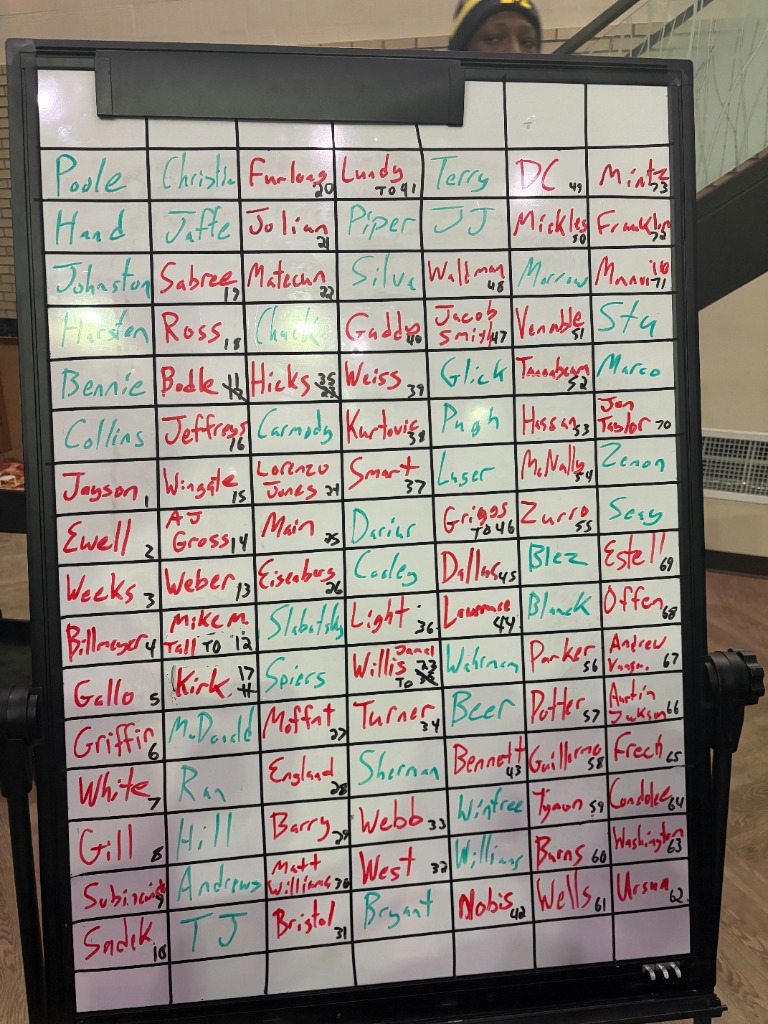 Poole Christin Furlong 20 Lundy TO 41 Terry DC 49 Mintz 73
Hand Jaffe Julian 21 Piper JJ Mickles 50 Franklin 72
Johnston Sabree 19 Matecun 22 Silva Waldman 48 Morrow 71
Harsten Ross 18 Chuck Gaddy 40 Jacob Smith 47 Venable 51 Stu
Bennie Bodle 11 Hicks 35 Weiss 39 Glick Tanenbaum 52 Marco
Collins Jeffreys 16 Carmody Kurtovic 38 Pugh Hassan 53 Jon Taylor 70
Jayson 1 Wingate 15 Lorenzo Jones 24 Smart 37 Laser McNally 54 Zenon
Ewell 2 AJ Gross 14 Main 25 Darius Griggs TO 46 Zurro 55 Seay
Weeks 3 Weber 13 Eisenberg 26 Cooley Dallas 45 Blez Estell 69
Billmeyer 4 Mike M. Tall TO 12 Slabatsky Light 36 Lawrence 44 Blanck Offen 68
Gallo 5 Kirk 17 Spiers Willis Jamal TO 23 Wahrman Parker 56 Andrew 67
Griffin 6 McDonald Moffat 27 Turner 34 Beer Potter 57 Austin Jackson 66
White 7 Ran England 28 Sherman Bennett 43 Guillermo 58 Frech 65
Gill 8 Hill Barry 29 Webb 33 Winfree Tymon 59 Condolee 64
9 Andrews Matt Williams 30 West 32 Williams Burns 60 Washington 63
Sadek 10 TJ Bristol 31 Bryant Nobis 42 Wells 61 Ursua 62